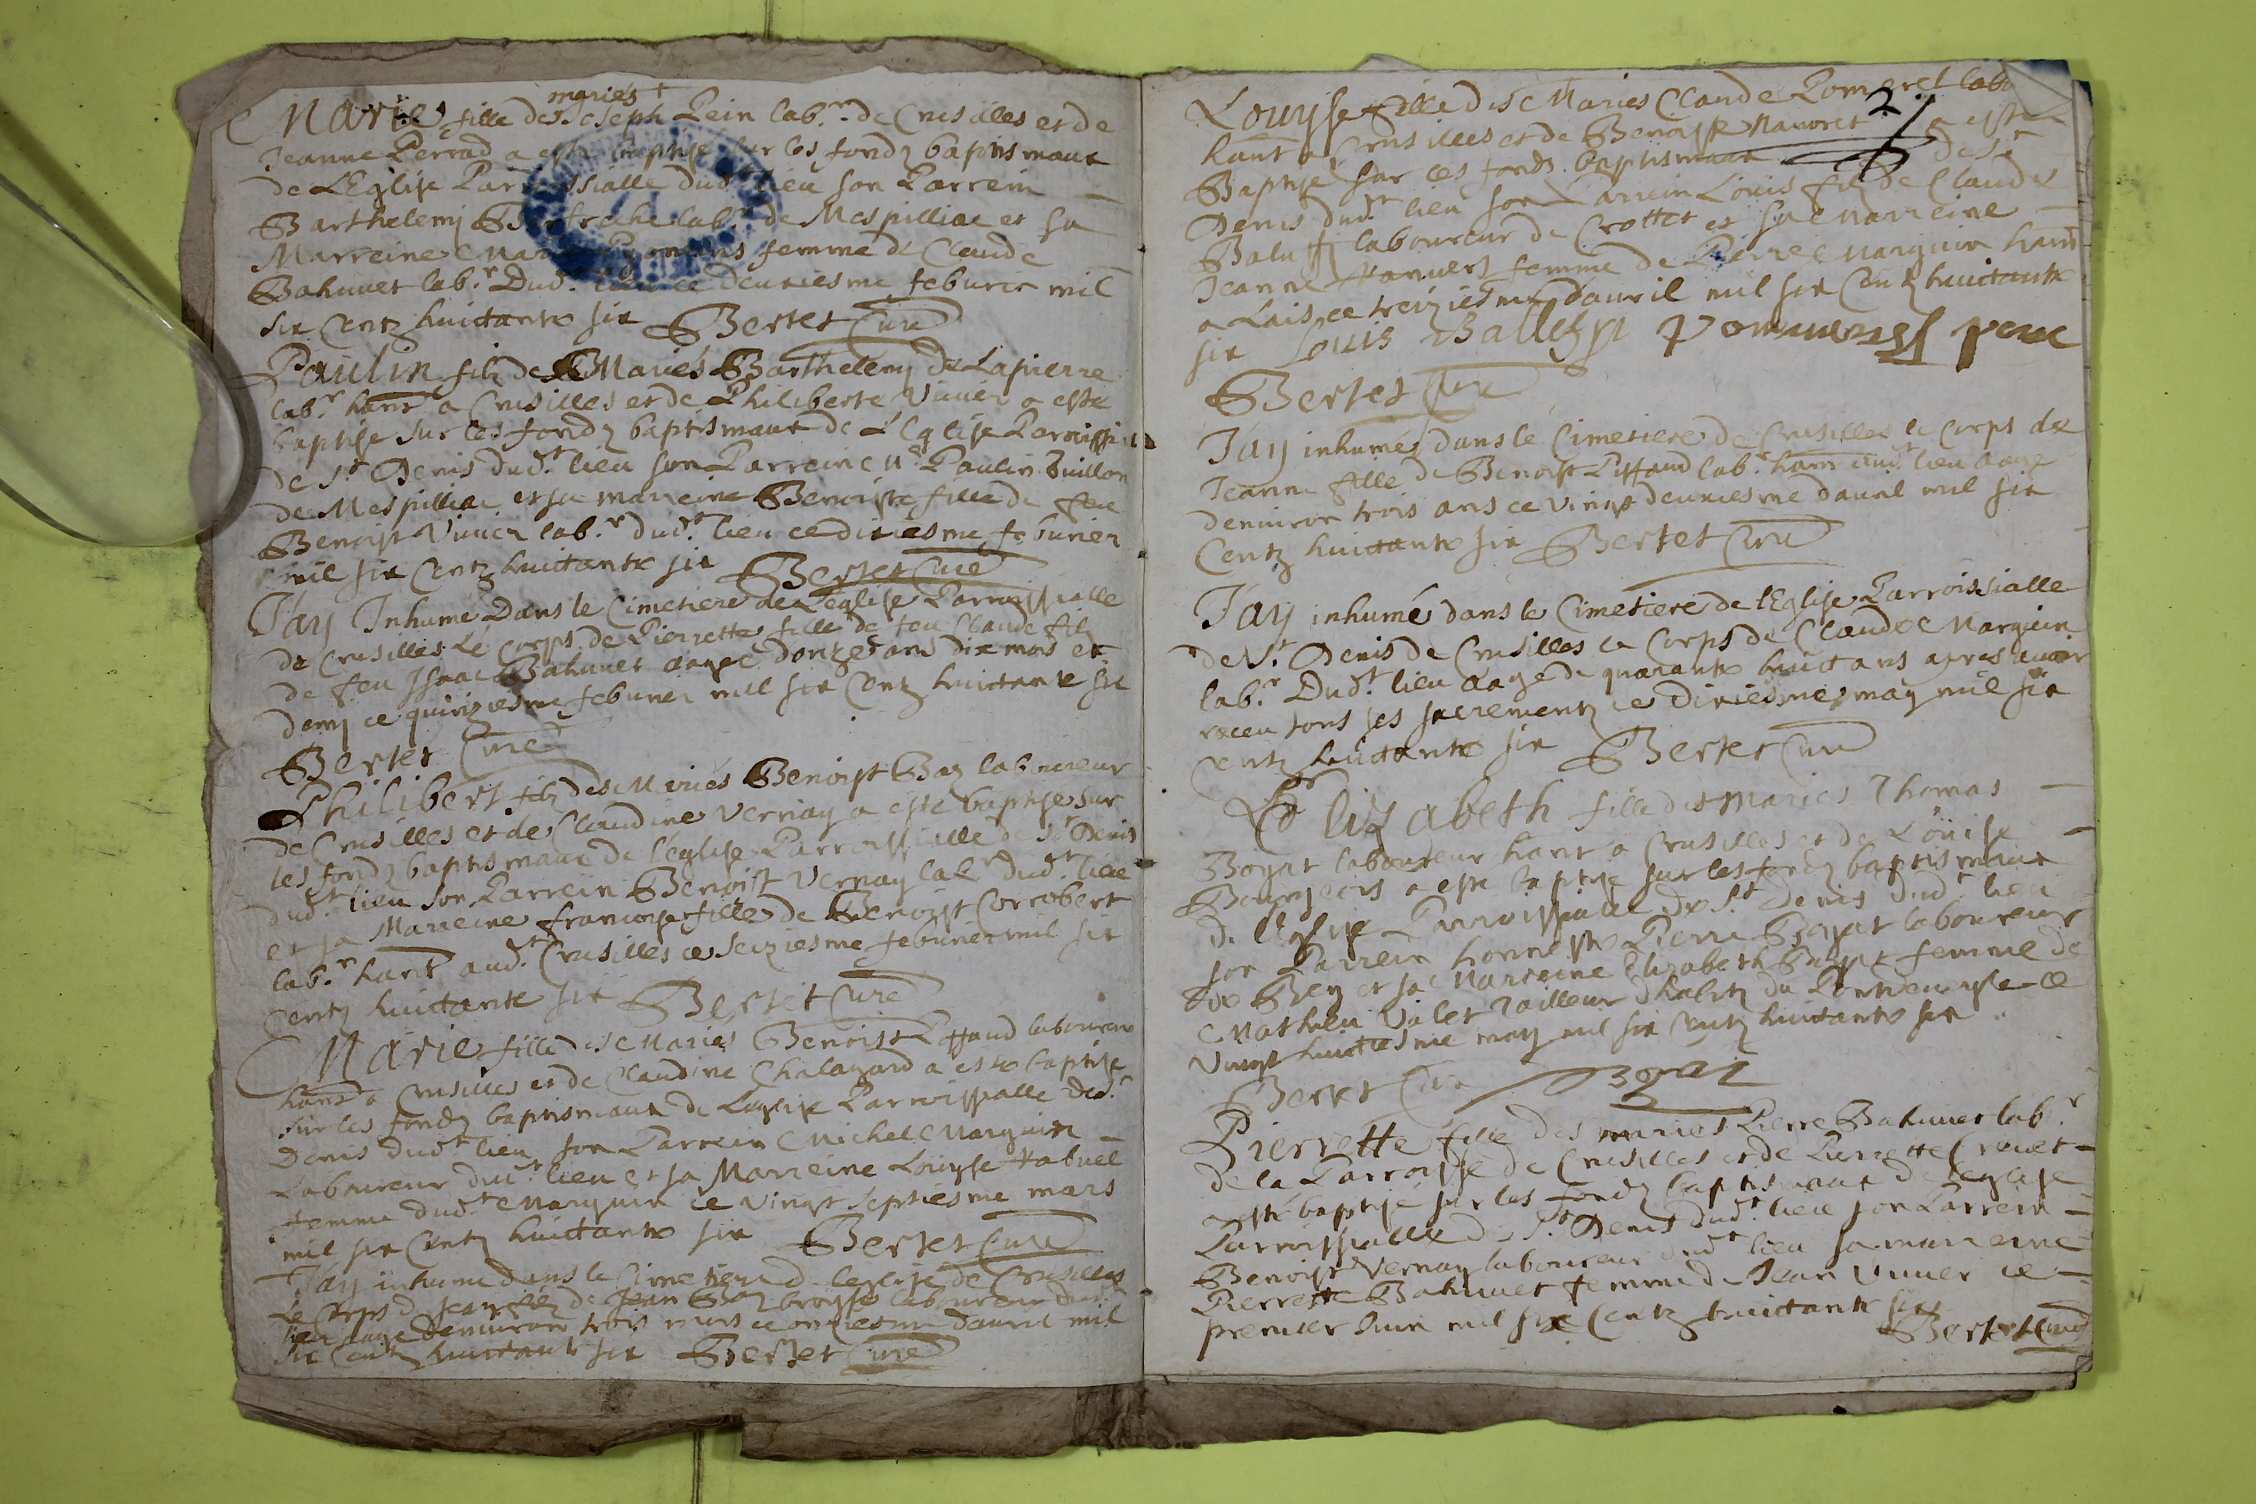 mariés +
Marie fille des Joseph Pein lab.r de Crusilles et de
Jeanne Perrad a esté baptisé sur les fondz baptismaux
de L'Eglise Parroissialle dud.t lieu son Parrein
Barthelemj lab.r de Mespilliac et sa
Marreine femme de Claude
Bahuuet lab.r Dud.t lieu ce deuxiesme feburier mil
six Centz huictante six Bertet Curé
Paulin filz de Mariés Barthelemj de Lapierre
lab.r hant a Crusilles et de Philiberte Viuier a esté
baptisé sur les fondz baptismaux de L'Eglise Parroissial
de S.t Denis dud.t lieu son Parrein M.r Paulin Buillon
de Mespilliac et sa marreine Benoiste fille de feu
Benoist Viuier lab.r dud.t lieu ce dixiesme feburier
mil six Centz huictante six Bertet Curé
J'ay Inhumé Dans le Cimetiere de L'eglise Parroissialle
de Crusilles Le corps de Pierrette fille de feu Claude filz
de feu Isaac Bahuuet aagée donze ans dix mois et
demj ce quinziesme feburier mil six Centz huictante six
Bertet Curé
Philibert filz des Mariés Benoist Baz laboureur
de Crusilles et de Claudine Vernay a esté baptisé sur
les fondz baptismaux de l'eglise Parroissialle de S.t Denis
dud.t lieu son Parrein Benoist Vernay lab.r dud.t lieu
et sa Marreine francoise fille de Benoist Corrobert
lab.r hant aud.t Crusilles ce seiziesme feburier mil six
Centz huictante six Bertet Curé
Marie fille des Mariés Benoist Piffaud laboureur
hant a Crusilles et de Claudine Chalanard a esté baptisé
sur les fondz baptismaux de L'eglise Parroissialle de S.t
Denis dud.t lieu son Parrein Michel Marguin
Laboureur dud.t lieu et sa Marreine Louyse
femme dud.t Marguin ce vingt septiesme mars
mil six Centz huictante six Bertet Curé
J'ay inhumé dans le Cimetiere de l'eglise de Crusilles
Le Corps de Jean filz de Jean laboureur dud.t
lieu aagé Denuiron trois mois ce onziesme d'auril mil
six Centz huictante six Bertet Curé
2
Louyse fille des Mariés Claude Pomeret labo
hant a Crusilles et de Benoiste Mauoret a esté
Baptisé sur les fondz baptismaux de S.t
Denis dud.t lieu son Parrein Louis filz de Claude
laboureur de Crottet et sa Marreine
Jeanne femme de Pierre Marguin hant
a Lais ce treiziesme d'auril mil six Centz huictante
six Louis
Bertet Curé
J'ay inhumé dans le Cimetiere de Crusilles le corps de
Jeanne fille de Benoist Piffaud lab.r hant aud.t lieu aagé
denuiron trois ans ce vingt deuxiesme dauril mil six
Centz huictante six Bertet Curé
J'ay inhumé dans le Cimetiere de l'Eglise Parroissialle
de S.t Denis de Crusilles le Corps de Claude Marguin
lab.r Dud.t lieu aagé de quarante huict ans apres auoir
receu tous ses sacrementz ce dixiesme may mil six
centz huictante six Bertet Curé
Elizabeth fille des mariés Thomas
Boyat laboureur hant a Crusilles et de Louise
Bourgeois a esté baptisé sur les fondz baptismaux
de l'Eglise Parroissialle de S.t Denis dud.t lieu
son Parrein honneste Pierre Boyat laboureur
de Bey et sa Marreine Elizabeth femme de
Mathieu Valet Tailleur d'habitz du Pontdeueyle ce
Vingt huictiesme may mil six centz huictante six
Bertet Curé Boyat
Pierrette fille des mariés Pierre Bahuuet lab.r
de la Parroisse de Crusilles et de Pierrette Creuet
a esté baptisé sur les fondz baptismaux de l'eglise
Parroissialle de S.t Denis dud.t lieu son Parrein
Benoist Vernay laboureur dud.t lieu sa marreine
Pierrette Bahuuet femme de Jean Viuier ce
premier Juin mil six Centz huictante six
Bertet Curé